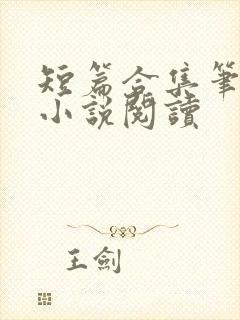 短篇合集筆
小說閱讀
王劍